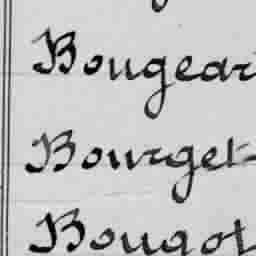 Bougear
Bourget
Bougot